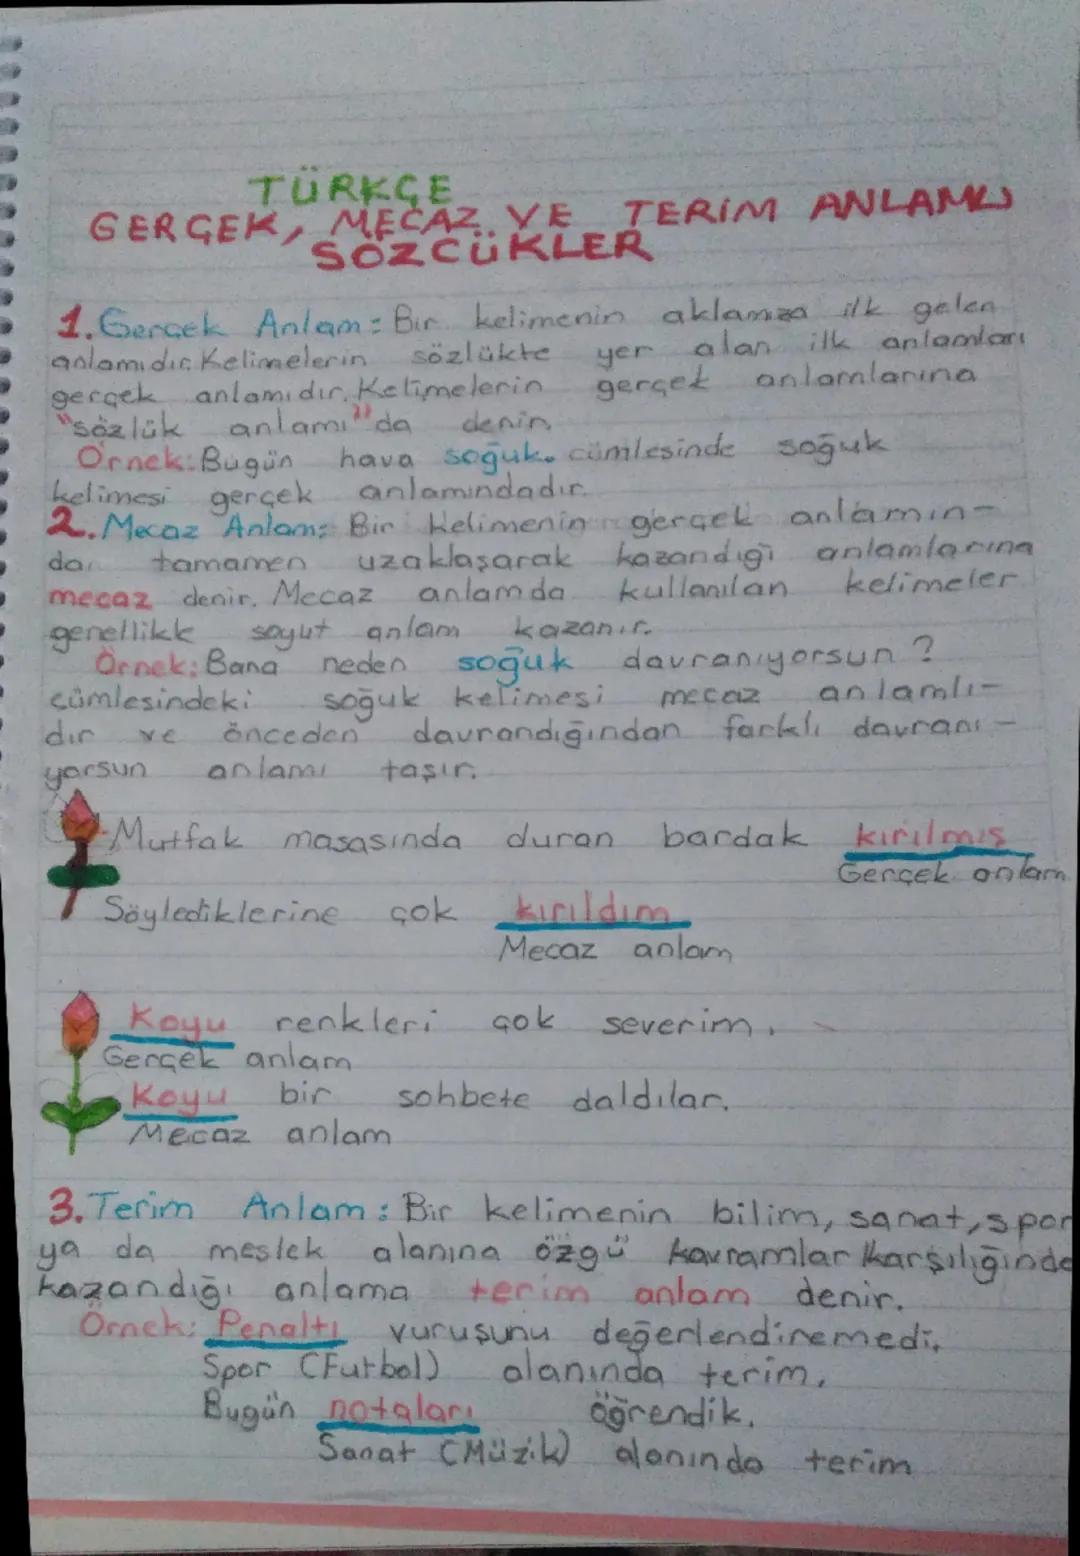 TÜRKÇE
GERÇEK, MECAZ VE TERİM ANLAMLI
SÖZCÜKLER
1. Gerçek Anlam: Bir kelimenin aklamıza ilk gelen
anlamıdır. Kelimelerin sözlükte yer alan ilk anlamları
gerçek anlamıdır. Kelimelerin gerçek anlamlarına
"sözlük anlamı" da denir.
Örnek: Bugün hava soğuk. cümlesinde soğuk
kelimesi gerçek anlamındadır.
2. Mecaz Anlam: Bir kelimenin gerçek anlamın-
dan tamamen uzaklaşarak kazandığı anlamlarına
mecaz denir. Mecaz anlamda kullanılan kelimeler
genellikle soyut anlam kazanır.
Örnek: Bana neden soğuk davranıyorsun?
cümlesindeki soğuk kelimesi mecaz anlamlı-
dır ve önceden davrandığından farklı davranı-
yorsun anlamı taşır.
Mutfak masasında duran bardak kırılmış
Gerçek anlam
Söylediklerine çok kırıldım
Mecaz anlam
Koyu renkleri çok severim.
Gerçek anlam
Koyu bir sohbete daldılar.
Mecaz anlam
3. Terim Anlam: Bir kelimenin bilim, sanat, spor
ya da meslek alanına özgü kavramlar karşılığında
kazandığı anlama terim anlam denir.
Örnek: Penaltı vuruşunu değerlendiremedi.
Spor (Futbol) alanında terim.
Bugün notaları öğrendik.
Sanat (Müzik) alanında terim